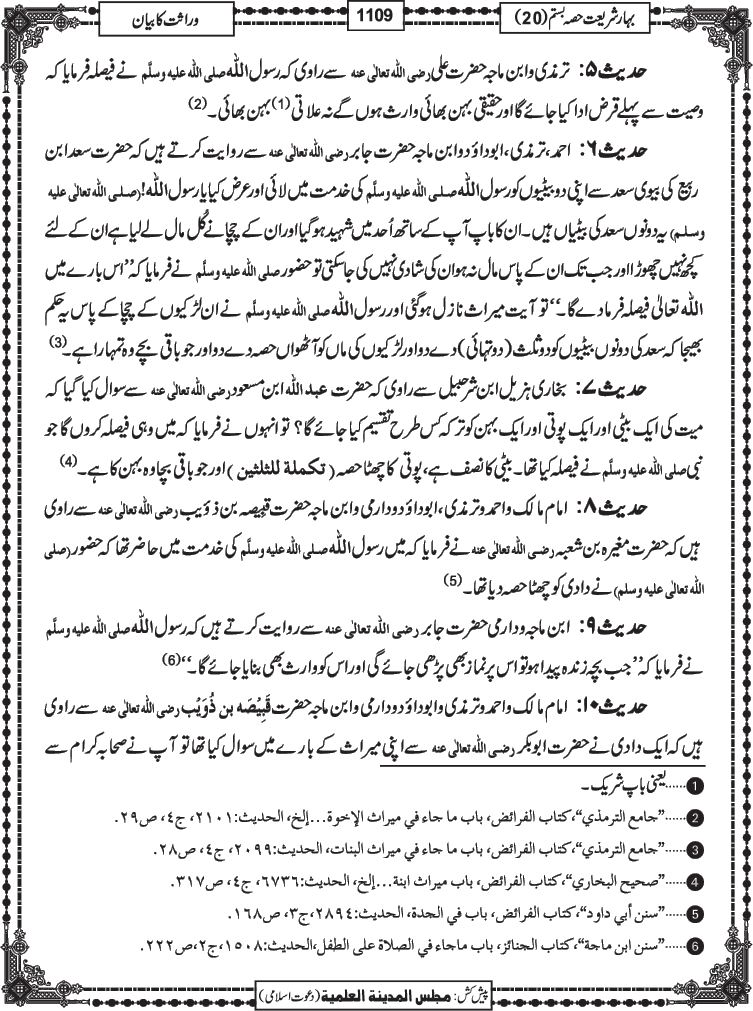 بہار شریعت حصہ بستم (20)
1109
وراثت کا بیان
حدیث ۵: ترمذی و ابن ماجہ حضرت علی رضی اللہ تعالٰی عنہ سے راوی کہ رسول اللہ صلی اللہ علیہ وسلَّم نے فیصلہ فرمایا کہ
وصیت سے پہلے قرض ادا کیا جائے گا اور حقیقی بہن بھائی وارث ہوں گے نہ علاتی (1) بہن بھائی۔ (2)
حدیث ۶: احمد، ترمذی، ابوداؤد و ابن ماجہ حضرت جابر رضی اللہ تعالٰی عنہ سے روایت کرتے ہیں کہ حضرت سعد ابن
ربیع کی بیوی سعد سے اپنی دو بیٹیوں کو رسول اللہ صلی اللہ علیہ وسلَّم کی خدمت میں لائی اور عرض کیا یا رسول اللہ! (صلی اللہ تعالٰی علیہ
وسلم) یہ دونوں سعد کی بیٹیاں ہیں۔ ان کا باپ آپ کے ساتھ اُحد میں شہید ہوگیا اور ان کے چچا نے کُل مال لے لیا ہے ان کے لئے
کچھ نہیں چھوڑا اور جب تک ان کے پاس مال نہ ہو ان کی شادی نہیں کی جاسکتی تو حضور صلی اللہ علیہ وسلَّم نے فرمایا کہ ’’اس بارے میں
اللہ تعالیٰ فیصلہ فرما دے گا۔‘‘ تو آیت میراث نازل ہوگئی اور رسول اللہ صلی اللہ علیہ وسلَّم نے ان لڑکیوں کے چچا کے پاس یہ حکم
بھیجا کہ سعد کی دونوں بیٹیوں کو دو ثلث (دو تہائی) دے دو اور لڑکیوں کی ماں کو آٹھواں حصہ دے دو اور جو باقی بچے وہ تمہارا ہے۔ (3)
حدیث ۷: بخاری ہزیل ابن شرحبیل سے راوی کہ حضرت عبد اللہ ابن مسعود رضی اللہ تعالٰی عنہ سے سوال کیا گیا کہ
میت کی ایک بیٹی اور ایک پوتی اور ایک بہن کو ترکہ کس طرح تقسیم کیا جائے گا؟ تو انہوں نے فرمایا کہ میں وہی فیصلہ کروں گا جو
نبی صلی اللہ علیہ وسلَّم نے فیصلہ کیا تھا۔ بیٹی کا نصف ہے، پوتی کا چھٹا حصہ (تکملة للثلثين) اور جو باقی بچا وہ بہن کا ہے۔ (4)
حدیث ۸: امام مالک و احمد و ترمذی، ابوداؤد و دارمی و ابن ماجہ حضرت قبیصہ بن ذؤیب رضی اللہ تعالٰی عنہ سے راوی
ہیں کہ حضرت مغیرہ بن شعبہ رضی اللہ تعالٰی عنہ نے فرمایا کہ میں رسول اللہ صلی اللہ علیہ وسلَّم کی خدمت میں حاضر تھا کہ حضور (صلی
اللہ تعالٰی علیہ وسلم) نے دادی کو چھٹا حصہ دیا تھا۔ (5)
حدیث ۹: ابن ماجہ و دارمی حضرت جابر رضی اللہ تعالٰی عنہ سے روایت کرتے ہیں کہ رسول اللہ صلی اللہ علیہ وسلَّم
نے فرمایا کہ ’’جب بچہ زندہ پیدا ہو تو اس پر نماز بھی پڑھی جائے گی اور اس کو وارث بھی بنایا جائے گا۔‘‘ (6)
حدیث ۱۰: امام مالک و احمد و ترمذی و ابوداؤد و دارمی و ابن ماجہ حضرت قَبِیْصَہ بن ذُوَیْب رضی اللہ تعالٰی عنہ سے راوی
ہیں کہ ایک دادی نے حضرت ابوبکر رضی اللہ تعالٰی عنہ سے اپنی میراث کے بارے میں سوال کیا تھا تو آپ نے صحابہ کرام سے
1 ......یعنی باپ شریک۔
2 ......”جامع الترمذي“،کتاب الفرائض، باب ما جاء في ميراث الإخوة...إلخ، الحديث:٢١٠١، ج٤، ص٢٩.
3 ......”جامع الترمذي“،کتاب الفرائض، باب ما جاء في ميراث البنات، الحديث:٢٠٩٩، ج٤، ص٢٨.
4 ......”صحيح البخاري“،کتاب الفرائض، باب ميراث ابنة...إلخ، الحديث:٦٧٣٦، ج٤، ص٣١٧.
5 ......”سنن أبي داود“،کتاب الفرائض، باب في الجدة، الحديث:٢٨٩٤،ج٣، ص١٦٨.
6 ......”سنن ابن ماجة“،کتاب الجنائز، باب ماجاء في الصلاة على الطفل،الحديث:١٥٠٨،ج٢،ص٢٢٢.
پیش کش: مجلس المدینة العلمیة (دعوت اسلامی)